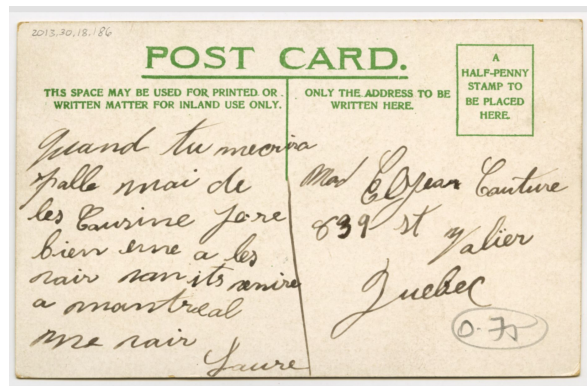 2013.30.18.186
POST CARD.
THIS SPACE MAY BE USED FOR PRINTED OR
WRITTEN MATTER FOR INLAND USE ONLY.
ONLY THE ADDRESS TO BE
WRITTEN HERE.
A
HALF-PENNY
STAMP TO
BE PLACED
HERE.
quand tu mecrira
palle moi de
les Cousine Je re
bien eme a les
voir van its venire
a montreal
me voir
Laure
Mad El Jean Couture
839 st Valier
Quebec
0-75